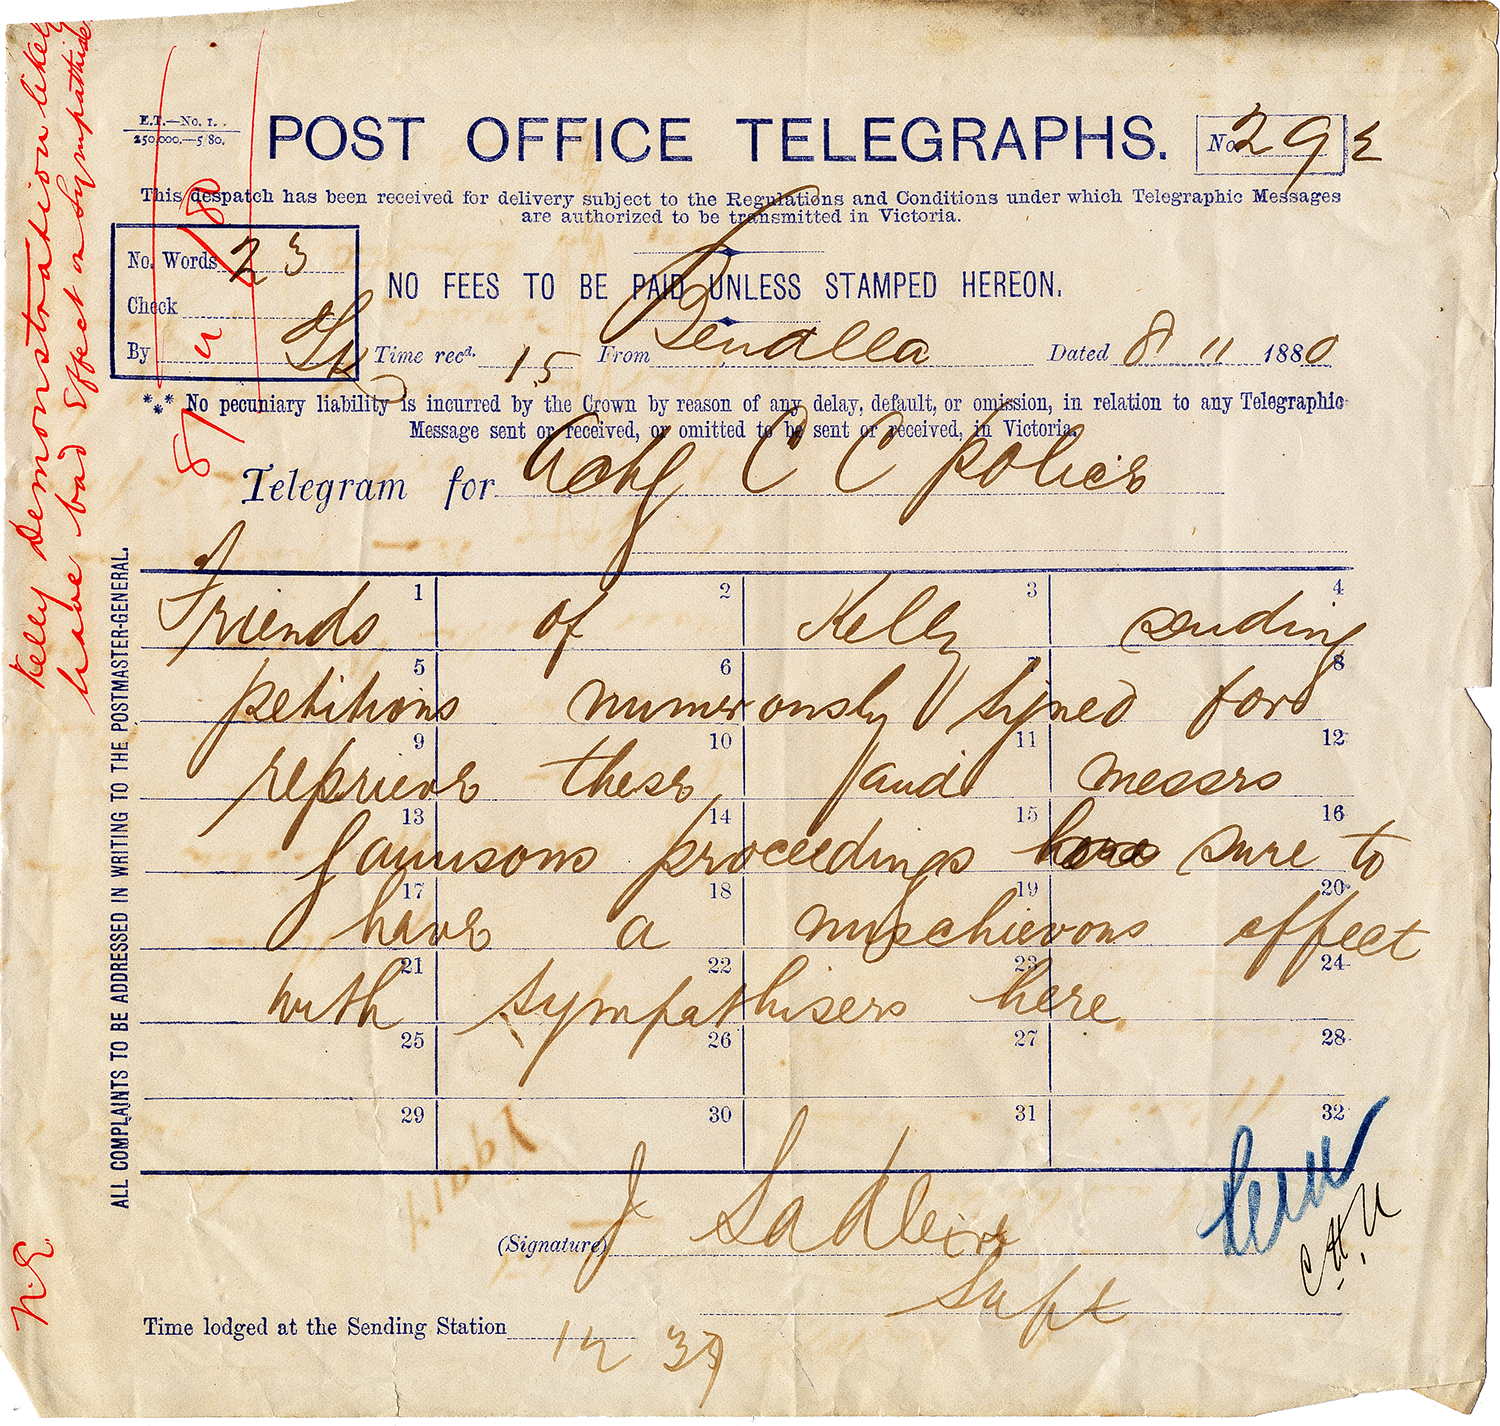 Kelly Demonstration likely
have bad Effect on Sympathide
E.T.—No. 1.
250,000.—5/80.
POST OFFICE TELEGRAPHS.
No. 29
This despatch has been received for delivery subject to the Regulations and Conditions under which Telegraphic Messages
are authorized to be transmitted in Victoria.
No. Words 23
Check
By
8/11/80
NO FEES TO BE PAID UNLESS STAMPED HEREON.
Time recd. 1.5 From Benalla Dated 8 11 1880
*** No pecuniary liability is incurred by the Crown by reason of any delay, default, or omission, in relation to any Telegraphic
Message sent or received, or omitted to be sent or received, in Victoria.
Telegram for Actg C C Police
ALL COMPLAINTS TO BE ADDRESSED IN WRITING TO THE POSTMASTER-GENERAL.
1 2 3 4
Friends of Kelly sending
5 6 7 8
petitions numerously signed for
9 10 11 12
reprieve these, and messrs
13 14 15 16
Gaunsons proceedings sure to
17 18 19 20
have a mischievous effect
21 22 23 24
with sympathisers here.
25 26 27 28
29 30 31 32
(Signature) J Sadleir
Supt
Time lodged at the Sending Station 12 37